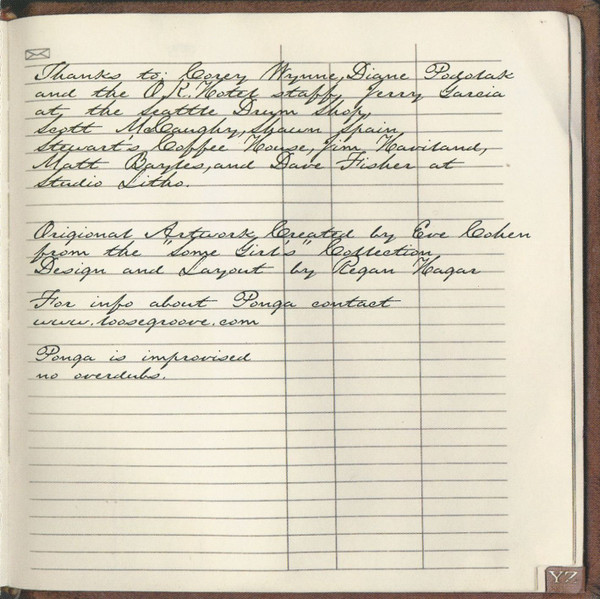 Thanks to: Corey Wynne, Diane Podolak
and the O.K. Hotel staff, Jerry Garcia
at the Seattle Drum Shop,
Scott McCaughy, Shawn Spain,
Stewart's Coffee House, Jim Haviland,
Matt Bayles, and Dave Fisher at
Studio Litho.
Origional Artwork Created by Eve Cohen
from the "Some Girl's" Collection
Design and Layout by Regan Hagar
For info about Ponga contact
www.loosegroove.com
Ponga is improvised
no overdubs.
YZ